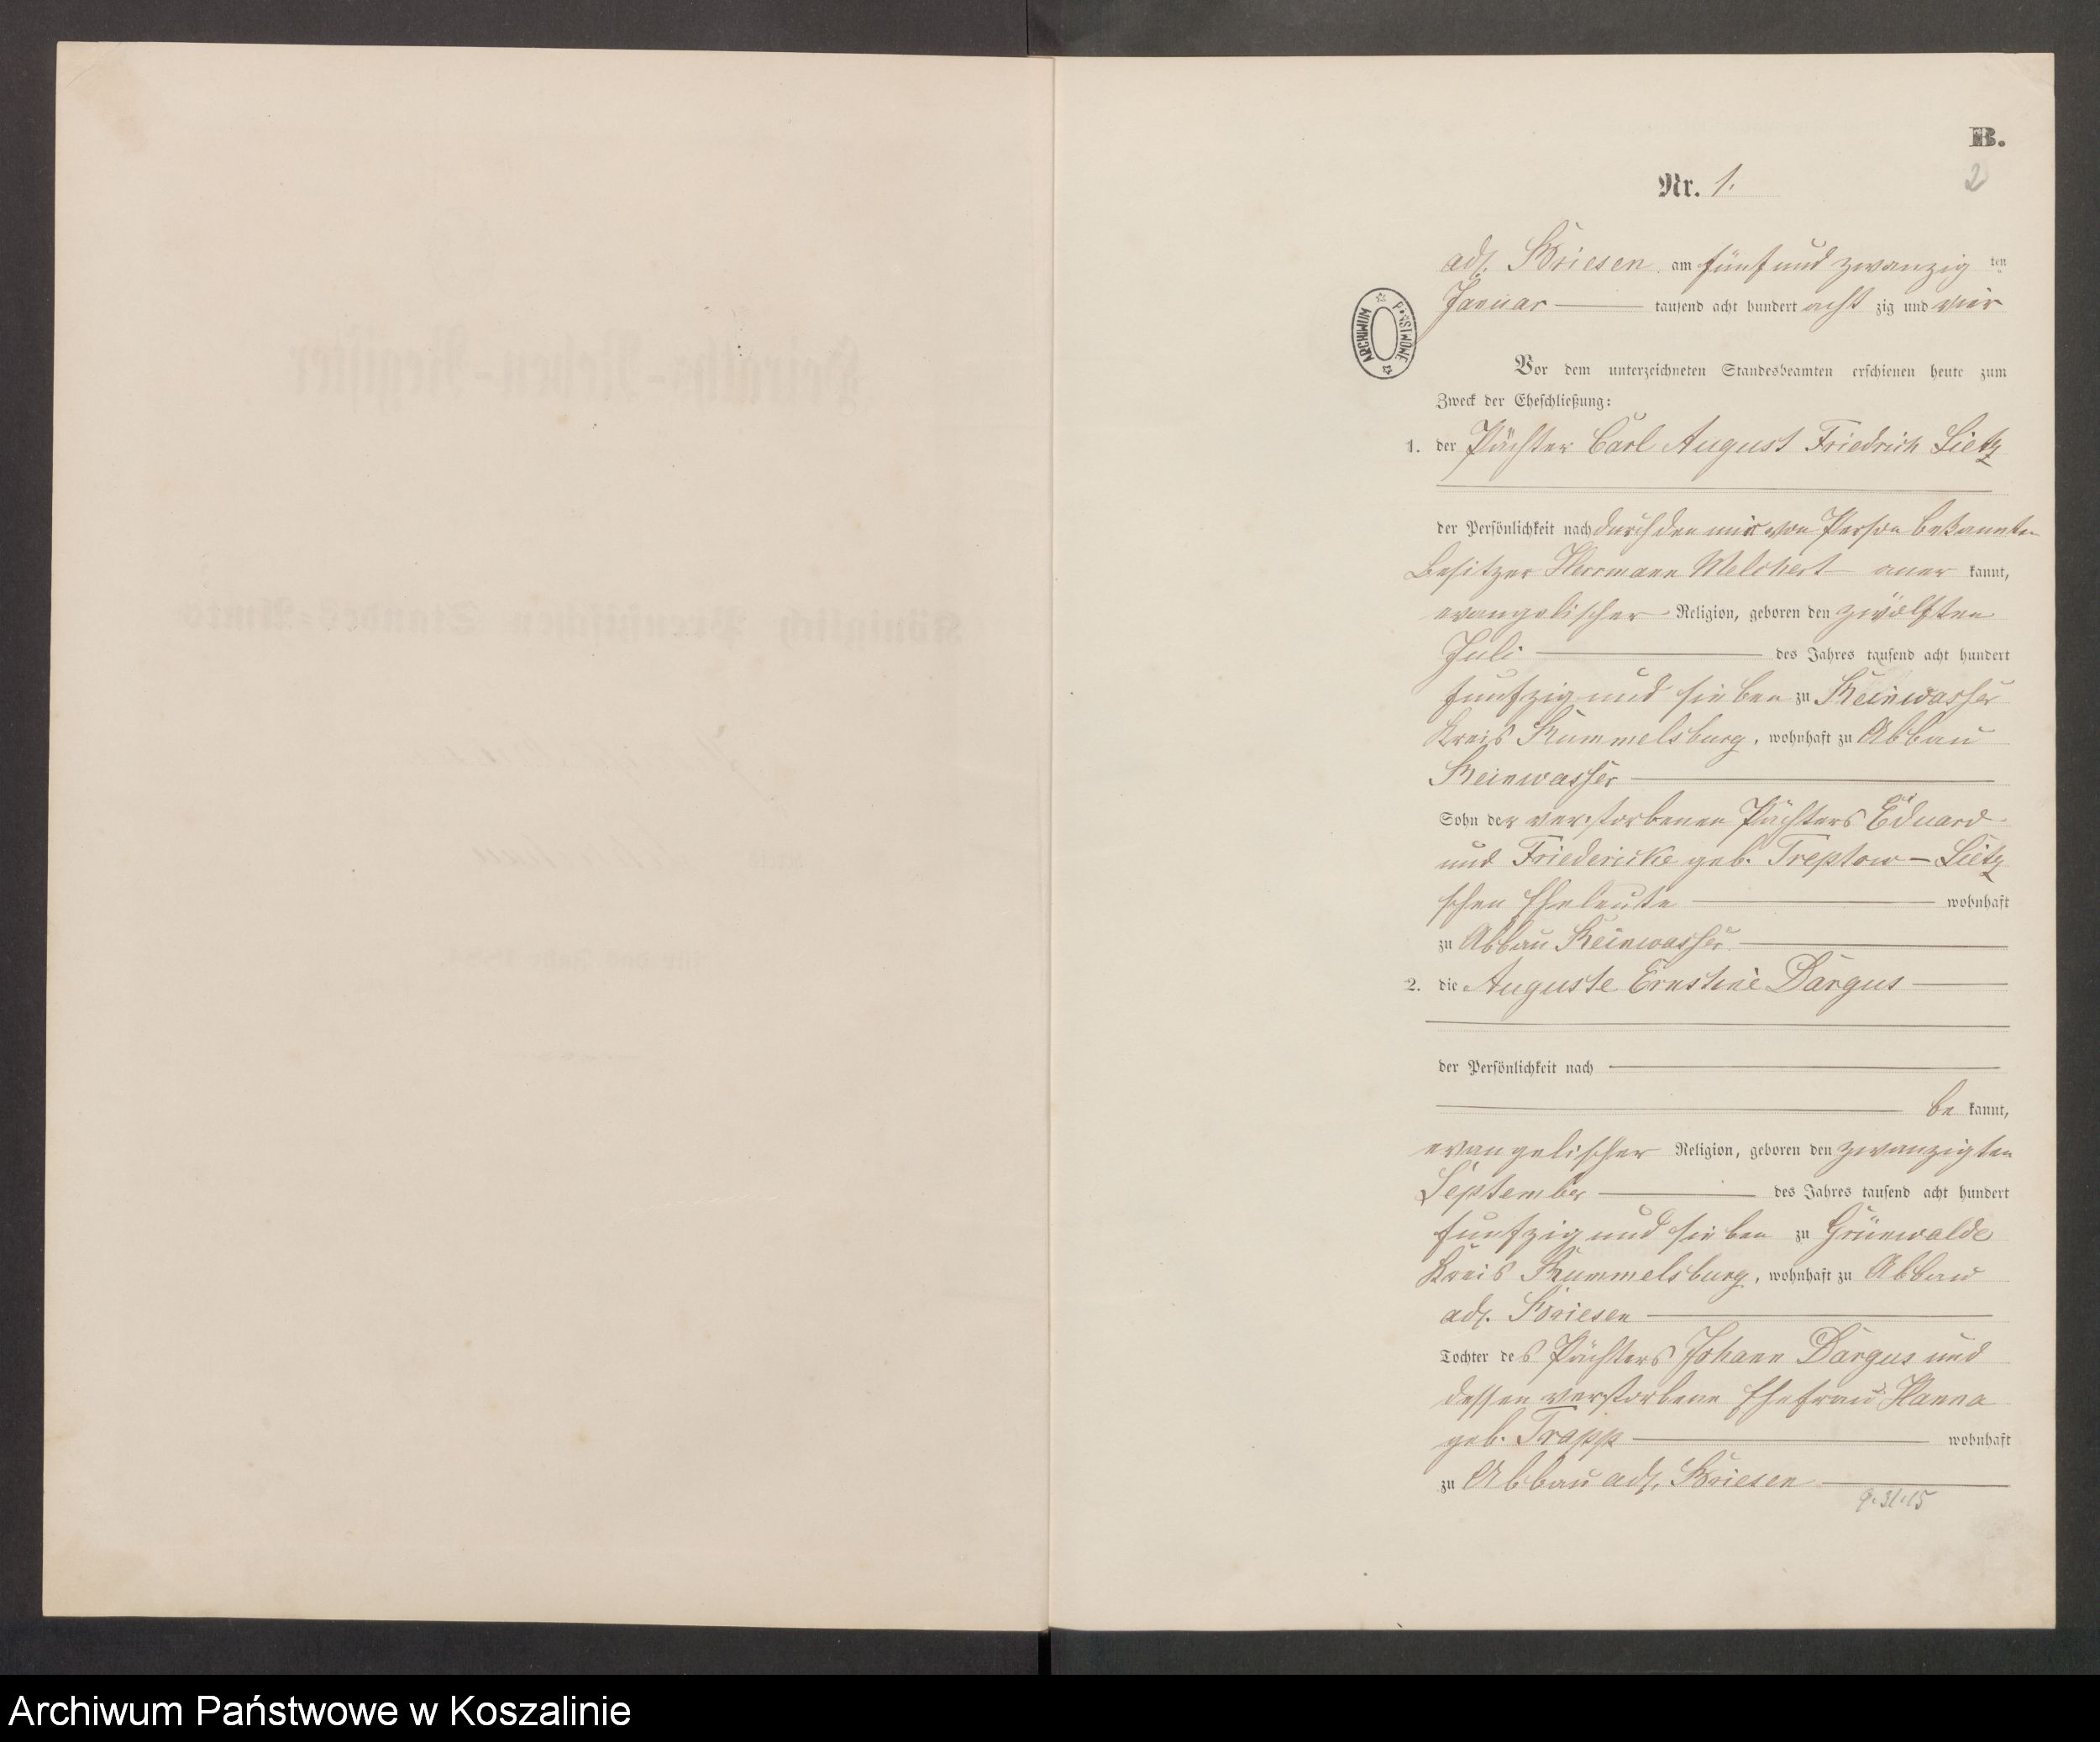 B.
2
Nr. 1.
adl. Briesen am fünf und zwanzig ten
Januar tausend acht hundert acht zig und vier
ARCHIWUM PAŃSTWOWE
Vor dem unterzeichneten Standesbeamten erschienen heute zum
Zweck der Eheschließung:
1. der Pächter Carl August Friedrich Lietz
der Persönlichkeit nach durch den mir von Person bekannten
Besitzer Herrmann Melchert aner kannt,
evangelischer Religion, geboren den zwölften
Juli des Jahres tausend acht hundert
funfzig und sieben zu Reinwasser
Kreis Rummelsburg, wohnhaft zu Abbau
Reinwasser
Sohn der verstorbenen Pächters Eduard
und Friedericke geb. Treptow – Lietz
schen Eheleute wohnhaft
zu Abbau Reinwasser
2. die Auguste Ernstine Dargus
der Persönlichkeit nach
be kannt,
evangelischer Religion, geboren den zwanzigten
September des Jahres tausend acht hundert
funfzig und sieben zu Grünwalde
Kreis Rummelsburg, wohnhaft zu Abbau
adl. Briesen
Tochter des Pächters Johann Dargus und
dessen verstorbene Ehefrau Hanna
geb. Trapp wohnhaft
zu Abbau adl. Briesen
9.31.15
Archiwum Państwowe w Koszalinie